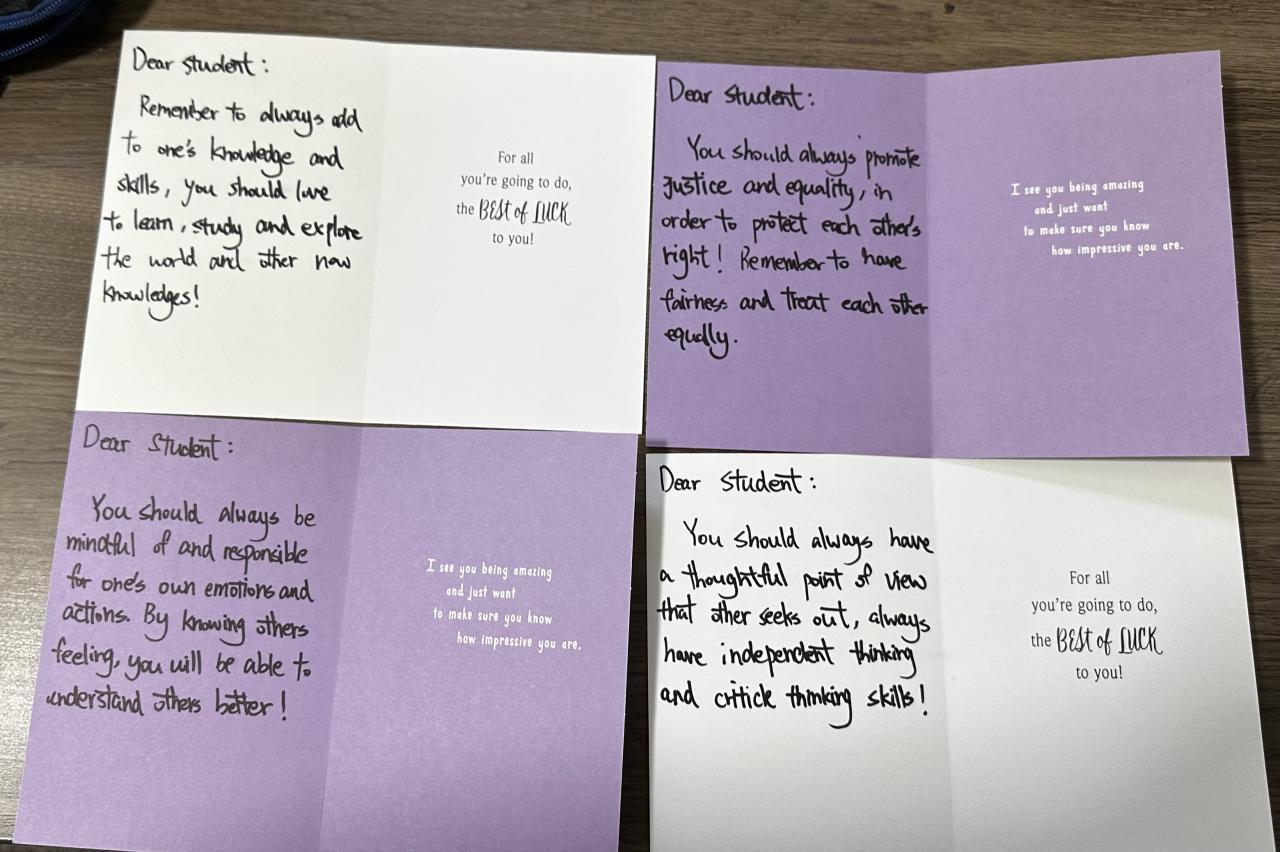 Dear student:
Remember to always add
to one's knowledge and
skills, you should love
to learn, study and explore
the world and other new
knowledges!
For all
you're going to do,
the BEST of LUCK
to you!
Dear student:
You should always promote
justice and equality, in
order to protect each other's
right! Remember to have
fairness and treat each other
equally.
I see you being amazing
and just want
to make sure you know
how impressive you are.
Dear Student:
You should always be
mindful of and responsible
for one's own emotions and
actions. By knowing others
feeling, you will be able to
understand others better!
I see you being amazing
and just want
to make sure you know
how impressive you are.
Dear student:
You should always have
a thoughtful point of view
that other seeks out, always
have independent thinking
and critick thinking skills!
For all
you're going to do,
the BEST of LUCK
to you!